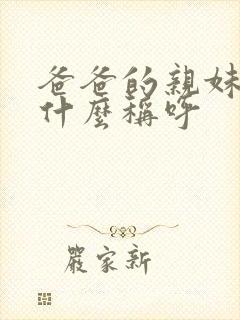 爸爸的親妹
什麼稱呼
嚴家新